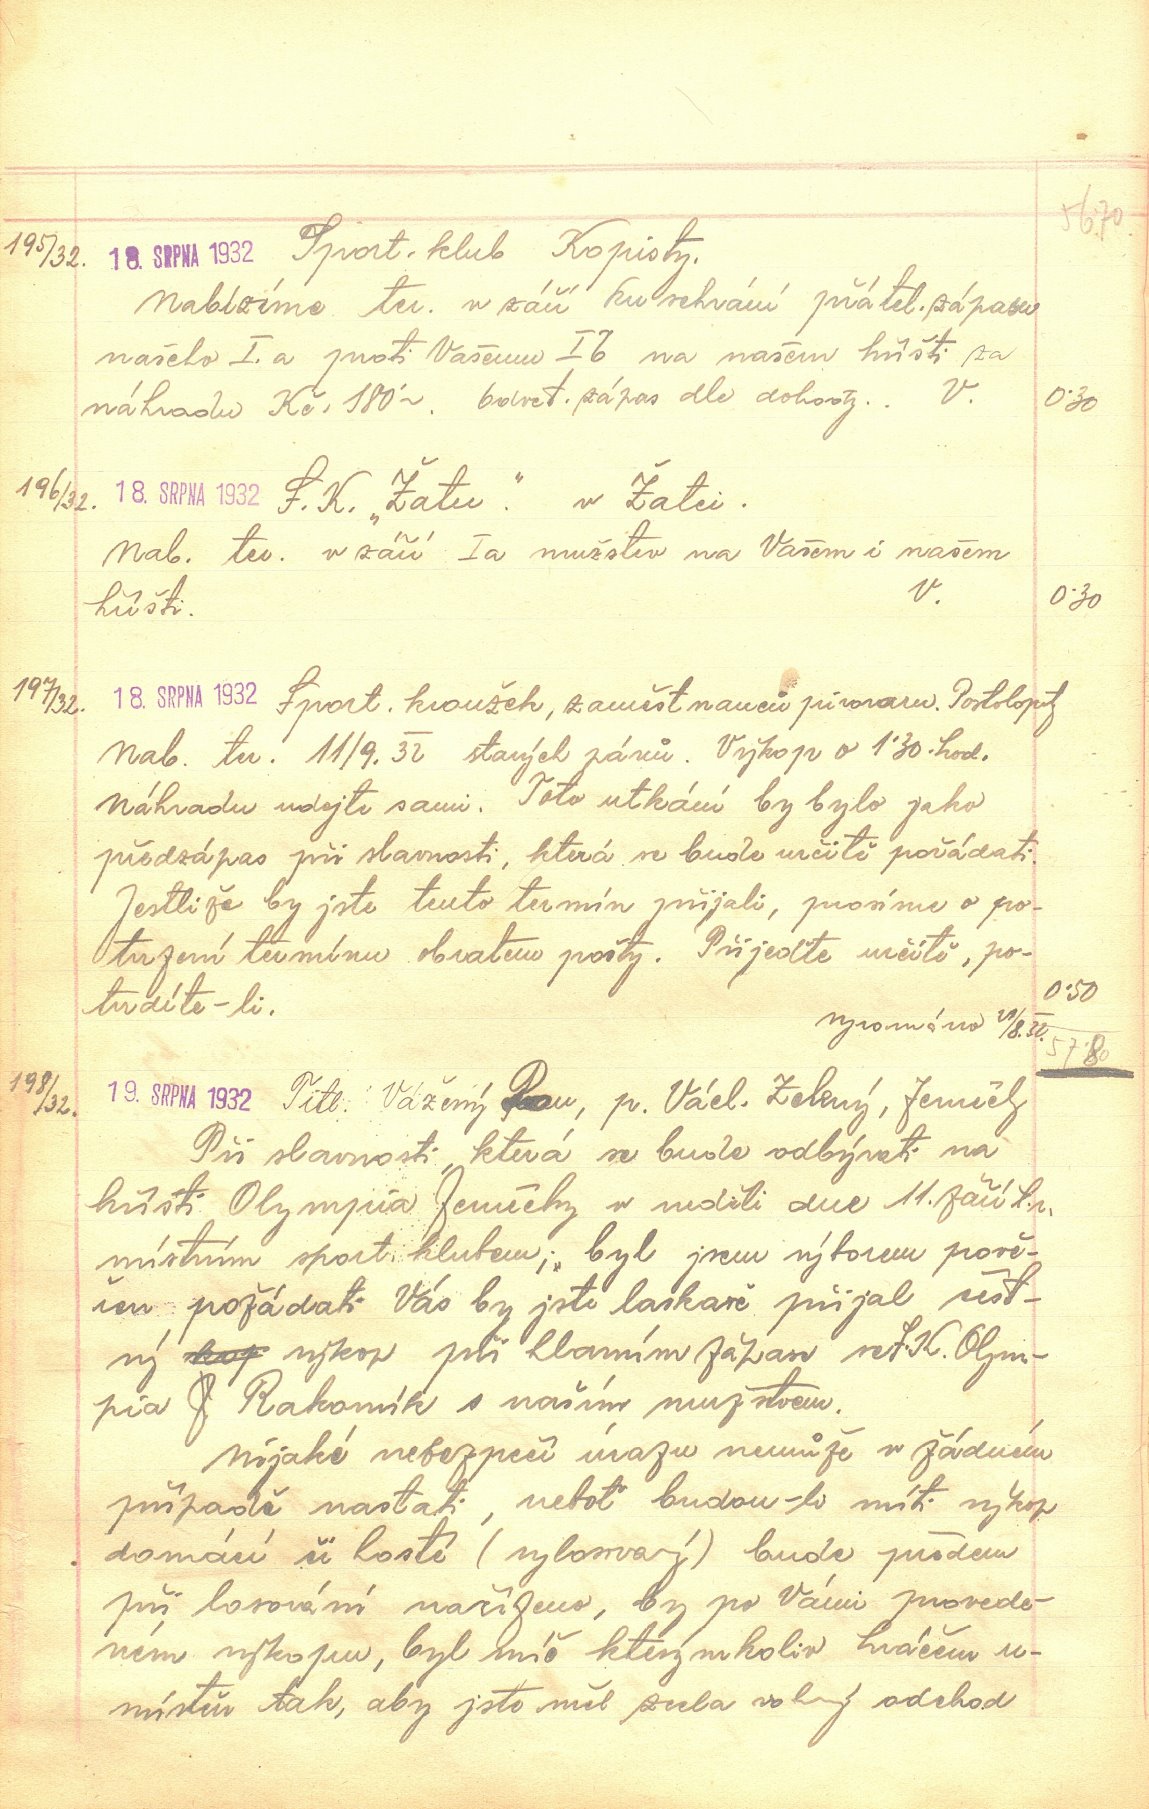 56.70
195/32. 18. SRPNA 1932 Sport. klub Kopisty.
Nabízíme ter. v září ku sehrání přátel. zápasu
našeho I. a proti Vašemu I b na našem hřišti za
náhradu Kč. 180'-. Odvet. zápas dle dohody.. V. 0.30
196/32. 18. SRPNA 1932 S.K. „Žatec." v Žatci.
Nab. ter. v září Ia mužstev na Vašem i našem
hřišti. V. 0.30
197/32. 18 SRPNA 1932 Sport. kroužek, zaměstnanců pivovaru. Postoloprty
Nab. ter. 11/9. 32 starých pánů. Výkop o 1.30. hod.
Náhradu udejte sami. Toto utkání by bylo jako
předzápas při slavnosti, která se bude určitě pořádati.
Jestliže by jste tento termín přijali, prosíme o po-
tvrzení termínu obratem pošty. Přijeďte určitě, po-
tvrdíte-li. 0.50
vyrovnáno /8. 32. 57.80
198/32. 19. SRPNA 1932 Titl. Vážený Pan, p. Václ. Zelený, Jeneček
Při slavnosti, která se bude odbývati na
hřišti Olympia v neděli dne 11. září t.r.
místním sport. klubem;, byl jsem výborem pově-
řen požádati Vás by jste laskavě přijal čest-
ný výkop při hlavním zápase s S.K. Olym-
pia Rakovník s naším mužstvem.
Nějaké nebezpečí úrazu nemůže v žádném
případě nastati, neboť budou-li míti výkop
domácí či hosté (vylosovaný) bude předem
při losování nařízeno, by po Vámi provede-
ném výkopu, byl míč kterýmkoliv hráčem u-
místěn tak, aby jste měl zcela volný odchod